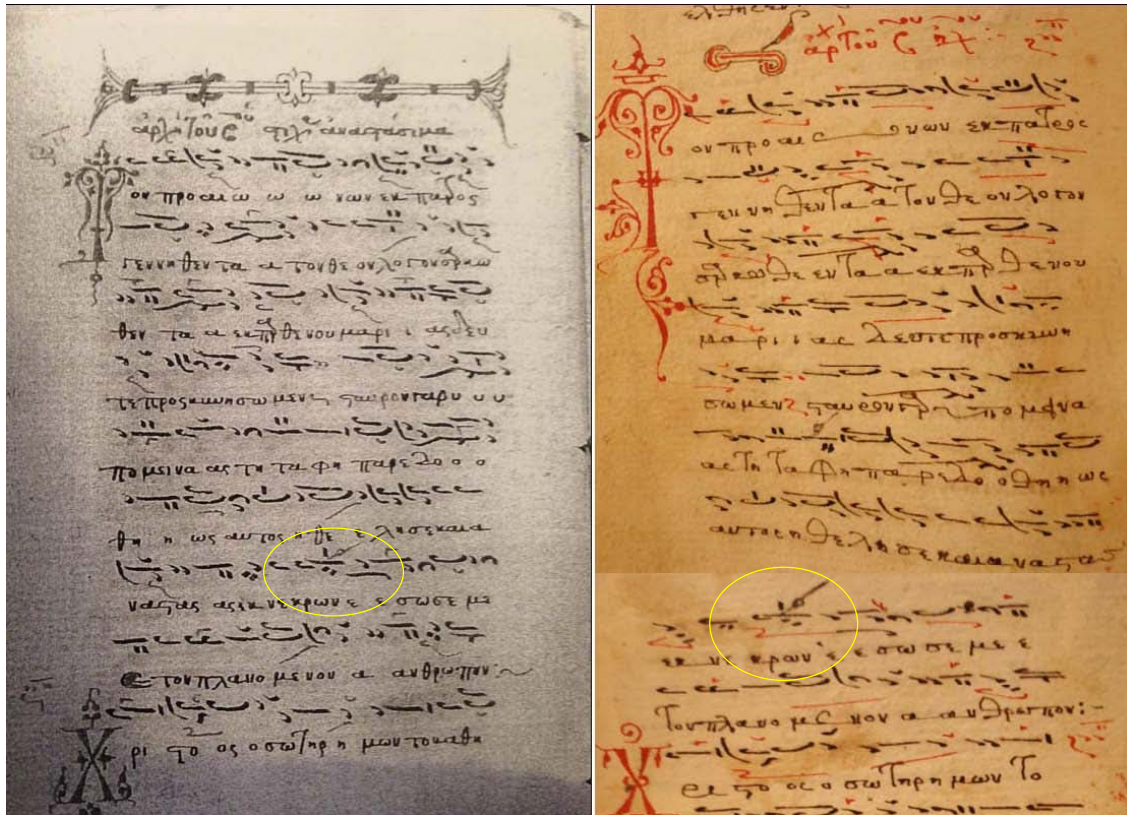 ἀρχὴ τοῦ ἀναστάσιμα
Τον προαιω ω ω νων εκ πατρος
γεννηθεντα α τον θε ον λογον σαρκω
θεν τα α εκ παρθενου μαρι ι ας δευ
τε προσκυνησωμεν ϛαυρον γαρ υ υ
πομεινα ας τη ταφη παρεδο ο ο
θη η ως αυτος ηθε ε λησε και α
ναϛας ας εκ νεκρων ε ε σωσε με
ε τον πλανομενον α ανθρωπον
Χρι ϛο ος ο σωτηρ η μων τον
Τον προ αι νων εκ πατρος
γεν νη θεν τα α τον θε ον λογον
σαρκω θε εν τα α εκ παρθενου
μα ρι ι ας δευτε προσκυνη
σωμεν ϛαυρον γαρ υπομεινα
ας τη ταφη παρεδο ο θη η ως
αυτος η θε λη σε και αναϛας
εκ νε κρων ε ε σω σε με ε
τον πλανομε νον α ανθρωπον:-
Χρι ϛο ος ο σωτηρ η μων το